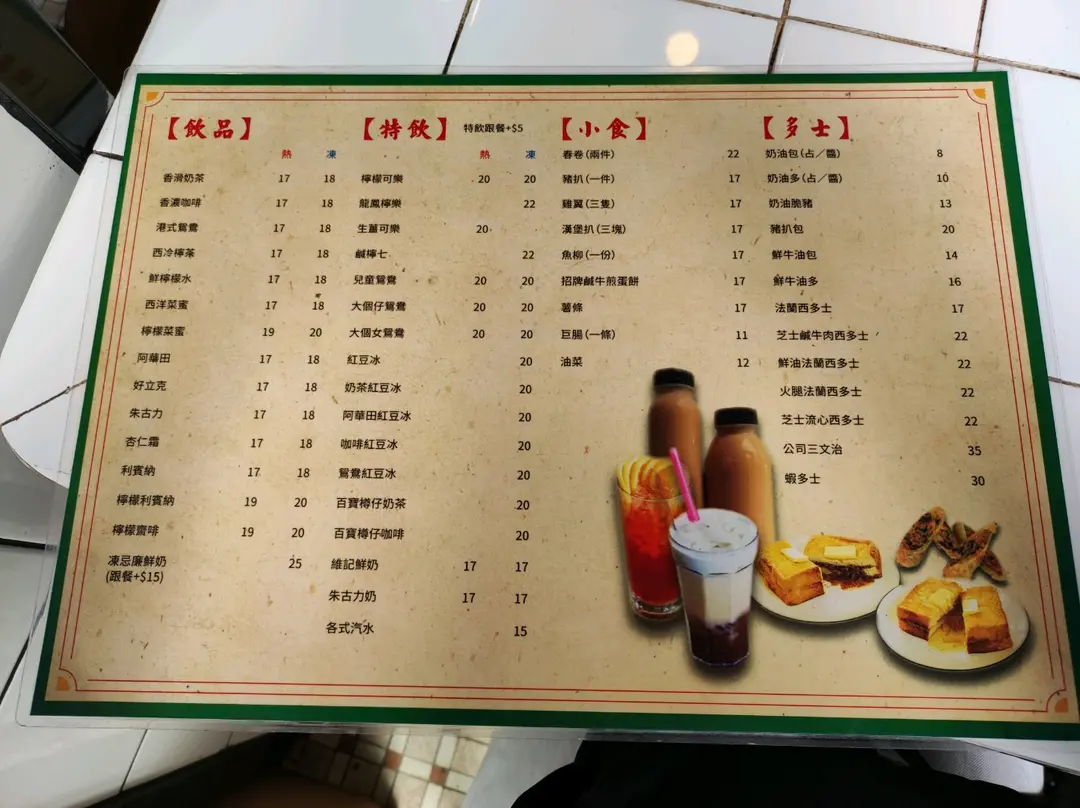 【飲品】
熱 凍
香滑奶茶 17 18
香濃咖啡 17 18
港式鴛鴦 17 18
西冷檸茶 17 18
鮮檸檬水 17 18
西洋菜蜜 17 18
檸檬菜蜜 19 20
阿華田 17 18
好立克 17 18
朱古力 17 18
杏仁霜 17 18
利賓納 17 18
檸檬利賓納 19 20
檸檬齋啡 19 20
凍忌廉鮮奶 25
(跟餐+$15)
【特飲】 特飲跟餐+$5
熱 凍
檸檬可樂 20 20
龍鳳檸樂 22
生薑可樂 20
鹹檸七 22
兒童鴛鴦 20 20
大個仔鴛鴦 20 20
大個女鴛鴦 20 20
紅豆冰 20
奶茶紅豆冰 20
阿華田紅豆冰 20
咖啡紅豆冰 20
鴛鴦紅豆冰 20
百寶樽仔奶茶 20
百寶樽仔咖啡 20
維記鮮奶 17 17
朱古力奶 17 17
各式汽水 15
【小食】
春卷(兩件) 22
豬扒(一件) 17
雞翼(三隻) 17
漢堡扒(三塊) 17
魚柳(一份) 17
招牌鹹牛煎蛋餅 17
薯條 17
巨腸(一條) 11
油菜 12
【多士】
奶油包(占／醬) 8
奶油多(占／醬) 10
奶油脆豬 13
豬扒包 20
鮮牛油包 14
鮮牛油多 16
法蘭西多士 17
芝士鹹牛肉西多士 22
鮮油法蘭西多士 22
火腿法蘭西多士 22
芝士流心西多士 22
公司三文治 35
蝦多士 30